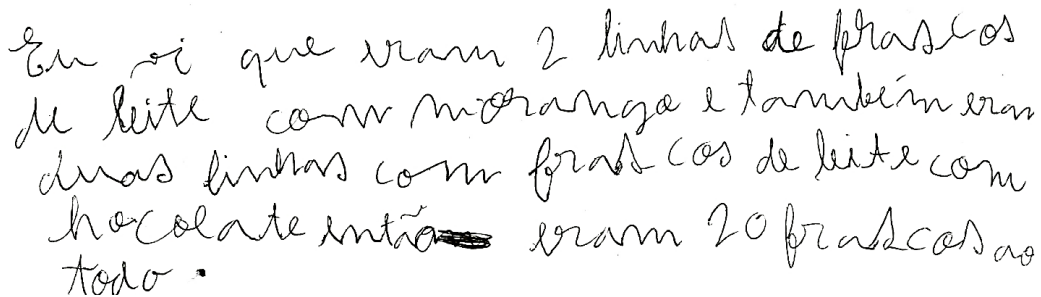 Eu vi que eram 2 linhas de frascos
de leite com morango e também eram
duas linhas com frascos de leite com
hocolate então eram 20 frascos ao
todo.